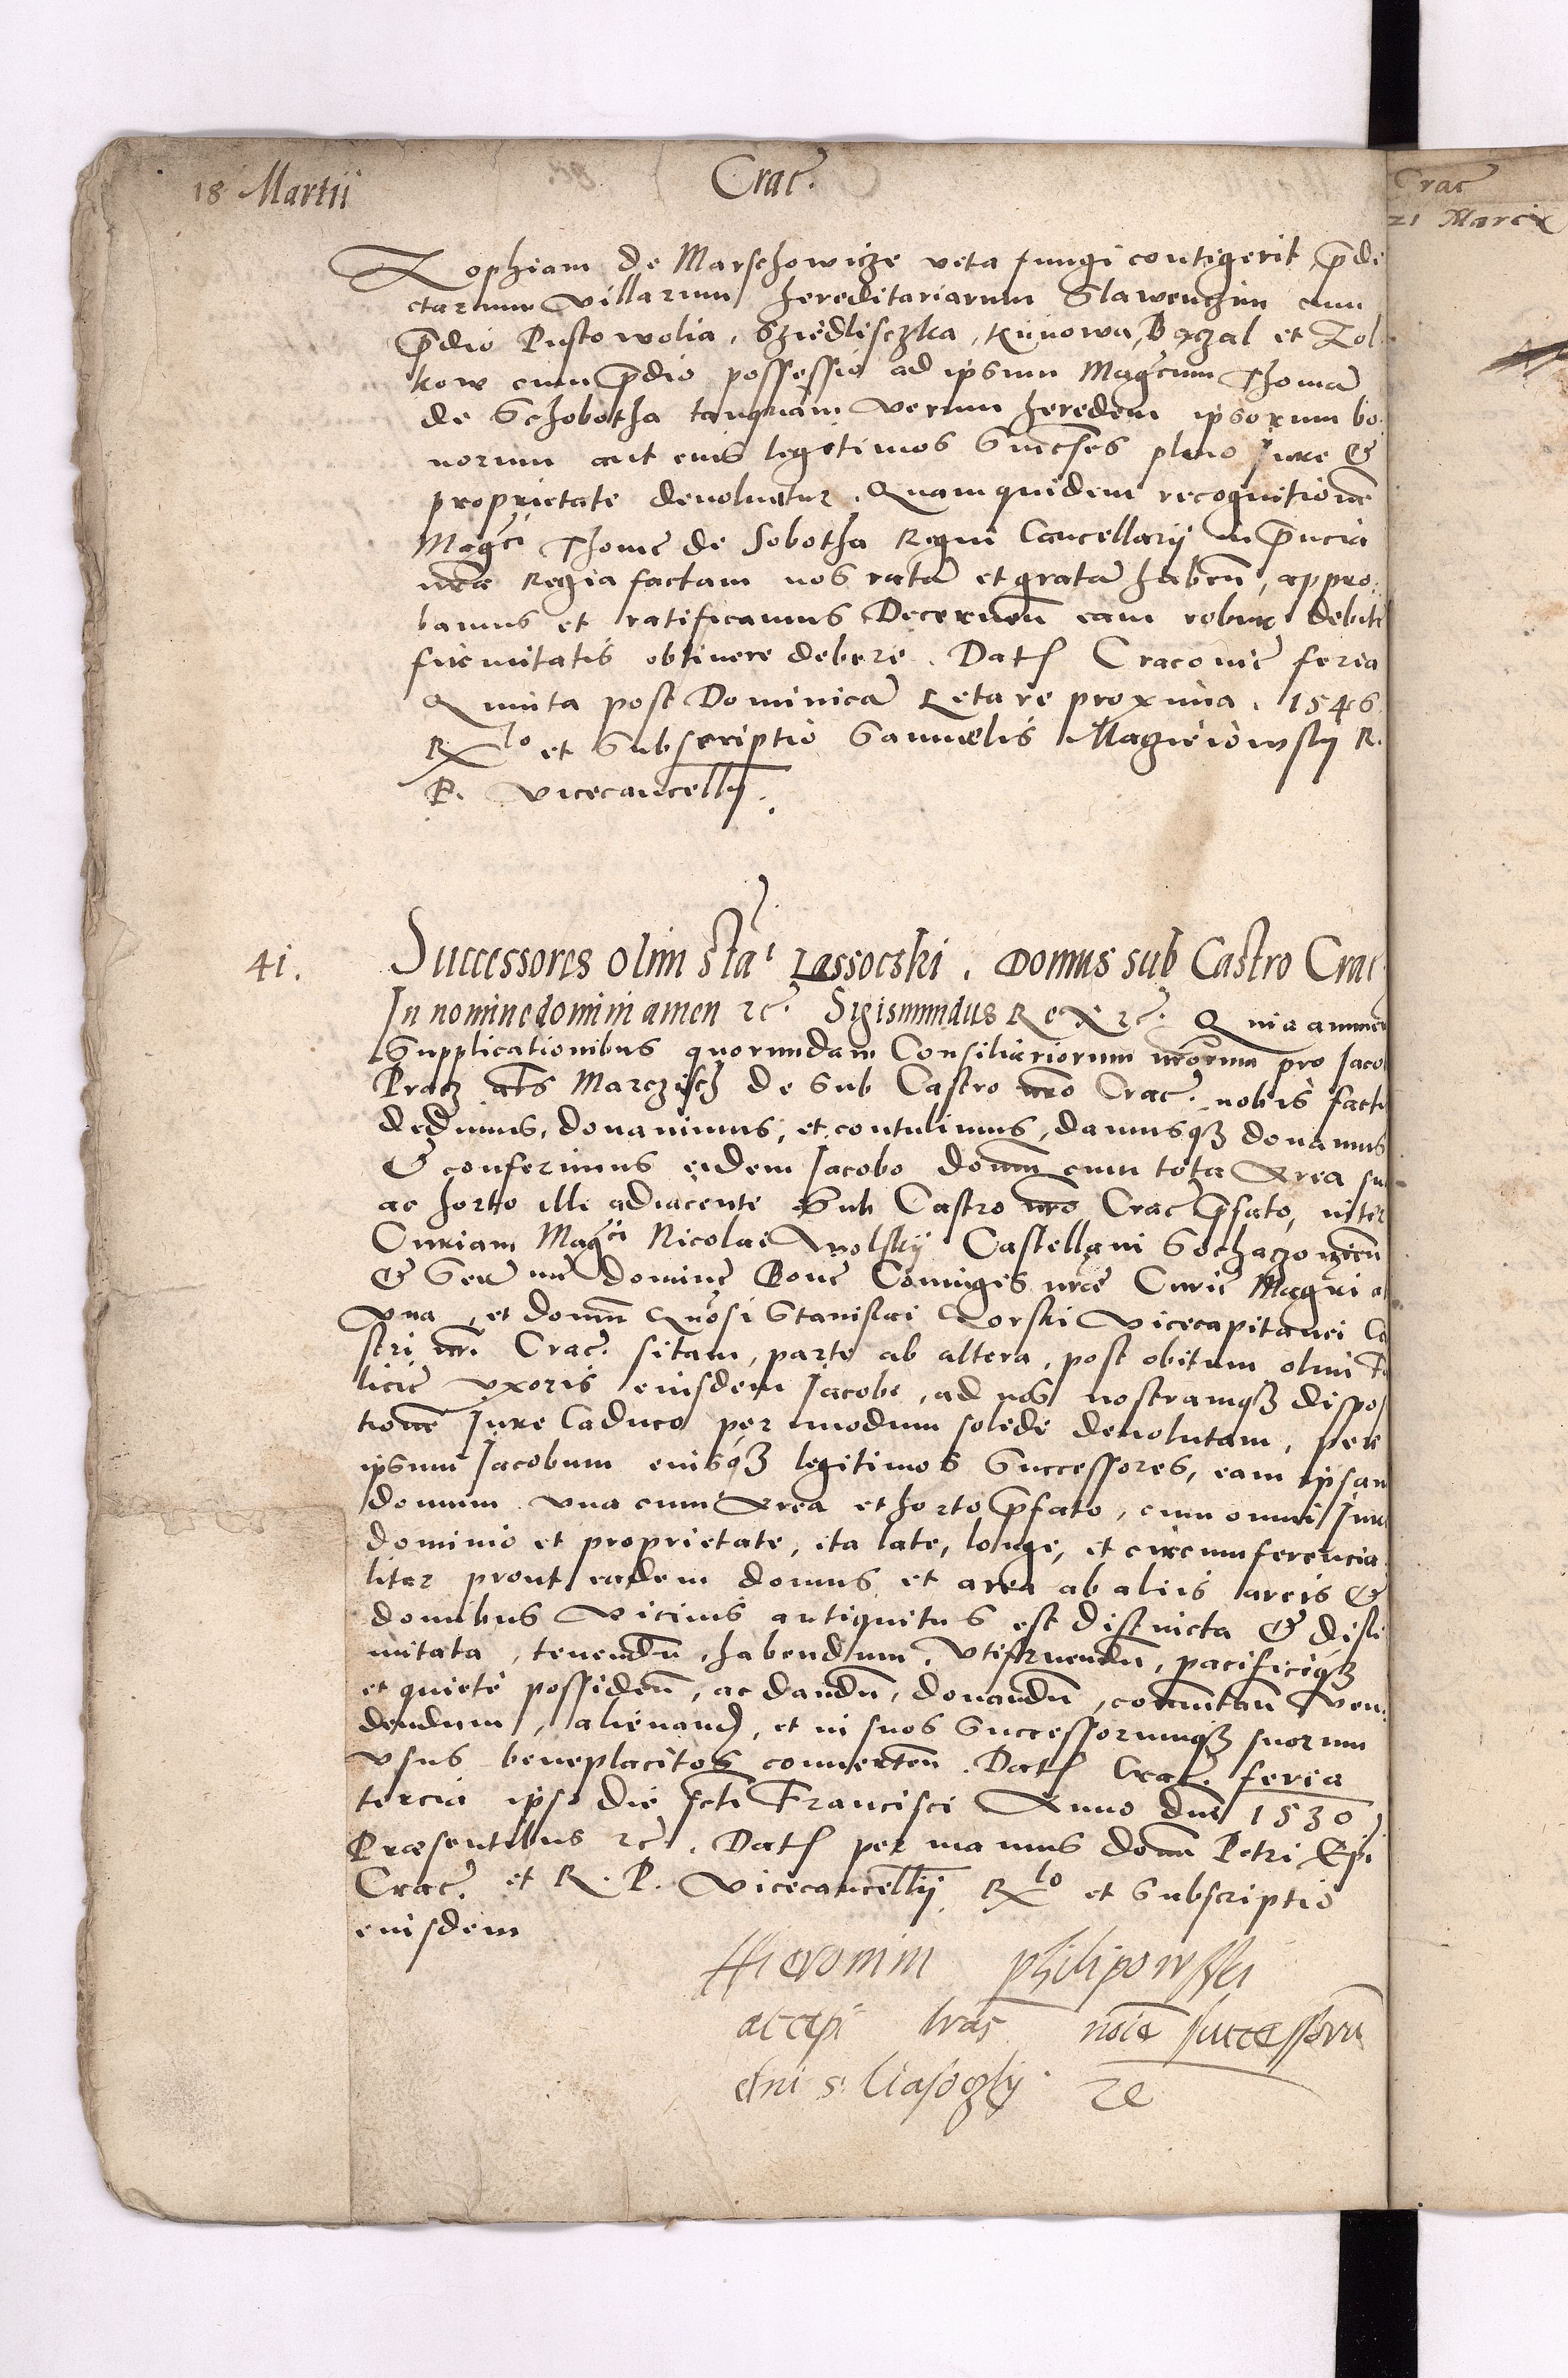 18 Martii
Crac.
Zophiam de Marschowicze vita fungi contigerit, prede
ctarum villarum hereditariarum Slawenczin cum
predio Pustowolia, Sziedlisczka, Kunowa, Byczal et Zol
kow cum predio possessio ad ipsum Magcum Thoma
de Schobotha tanquam verum heredem ipsorum bo
norum aut eius legitimos Succses pleno Iure &
proprietate devoluetur. Quamquidem recognitione
Magci Thome de Sobotha Regni Cancellarij in pruncia
nra Regia factam nos rata et grata haben, appro
bamus et ratificamus Decernen eam robur debite
firmitatis obtinere debere. Dat Cracovie feria
Quinta post Dominica Letare proxima. 1546.
Rlo et Subscriptio Samuelis Magieiowskij R.
P. Vicecancellij.
41.
Successores olim Sta. Lassoczki. Domus sub Castro Crac
In nomine domini amen rc. Sigismundus Rex rc. Quia
Supplicationibus quorundam Consiliariorum nrorum pro Jaco
Pracz als Marczisch de Sub Castro nro Crac. nobis facti
dedimus, donavimus, et contulimus, damusq donamus
& conferimus eidem Jacobo domum cum tota Area su
ac horto illi adiacente Sub Castro nro Crac prefato, inter
Curiam Magci Nicolai Wolskij Castellani Sochaczowien
& Sere me domine Bone Coniuges nre Curie Magri
vna, et domum Stanislai Vicecapitanei Ca
stri nri Crac. sitam, parte ab altera, post obitum olim
licie vxoris eiusdem Jacobi, ad nos nostramq dispos
tione Jure Caduco per modum solide devolutam, per
ipsum Jacobum eiusq legitimos Successores, eam ipsam
domum vna cum Area et horto prefato, cum omni Iure
dominio et proprietate, ita late, longe, et circumferencia
liter prout eadem domus et area ab aliis areis &
domibus vicinis antiquitus est distincta & disli
mitata, tenendu, habendum, vtifruendu, pacificiq
et quiete possiden, ac dandu, donandu, comutan ven
dendum, alienand, et in suos Successorumq suorum
vsus beneplacitos conuerten. Dat Crac. feria
tercia ipso die scti Francisci Anno dni 1530
Praesentibus rc. Dat per manus domni Petri Epi
Crac. et R. P. Vicecancellij Rlo et Subscriptio
eiusdem
Hieronim philipowski
accepi lras noie successoru
dni s. rc
Crac
21 Marcii